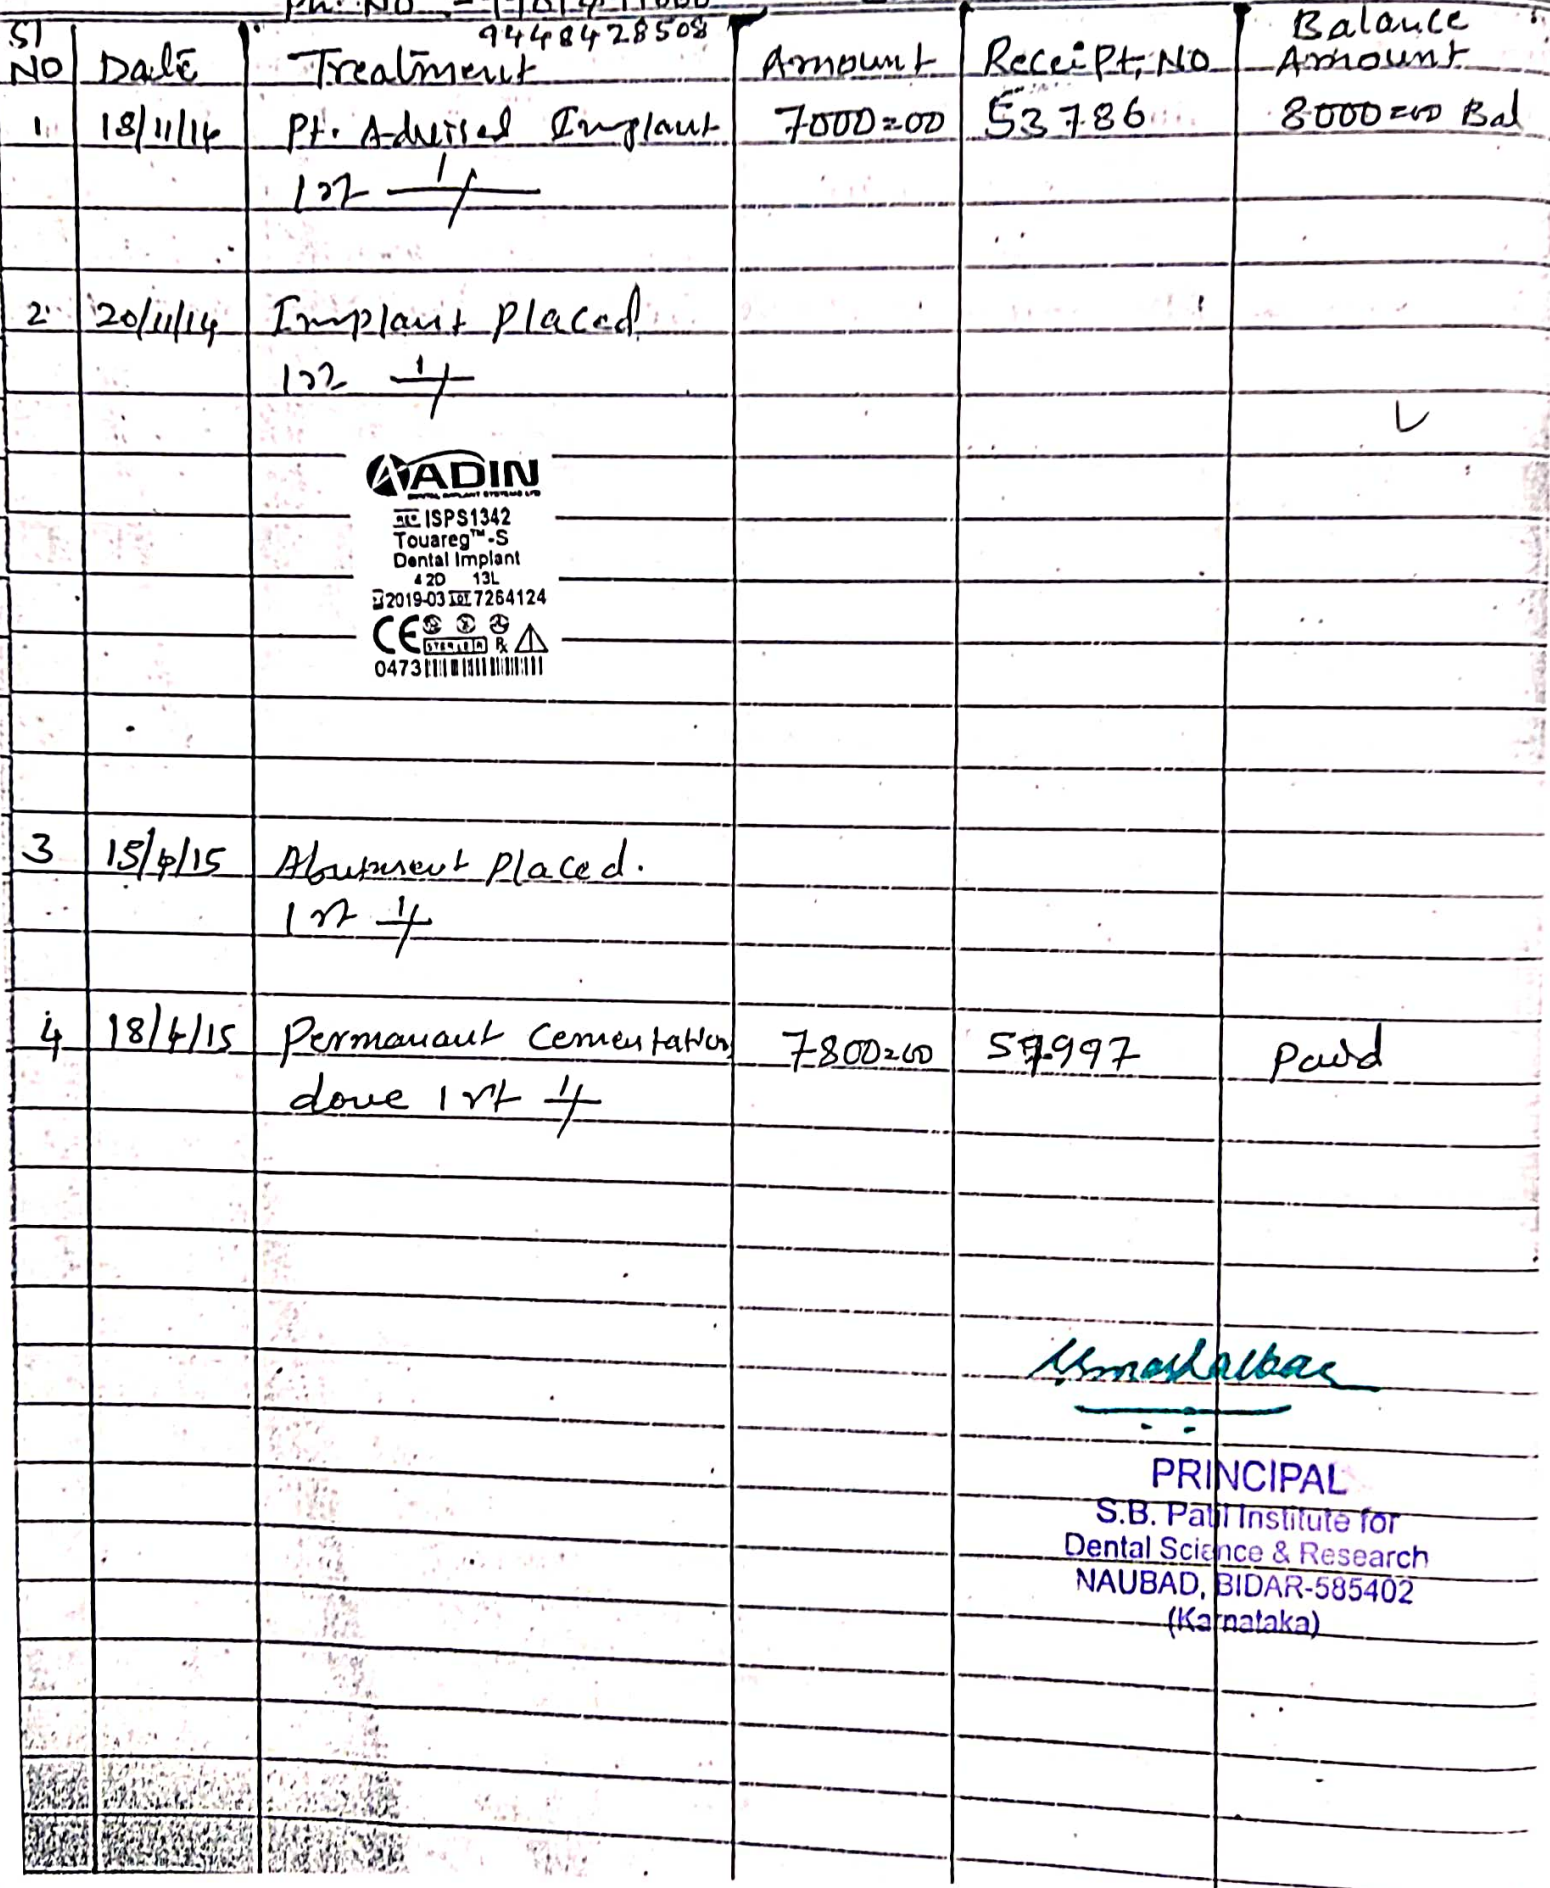 Ph. No
9448428508
Sl NO Date Treatment Amount Receipt, NO Balance Amount
1. 18/11/14 Pt. Advised Implant 7000=00 53786 8000=00 Bal
2. 20/11/14 Implant Placed
AADIN
DENTAL IMPLANT SYSTEMS LTD
ISPS1342
Touareg™-S
Dental Implant
4 2D 13L
2019-03 LOT 7264124
CE STERILE R Rx
0473
3 15/4/15 Abutment Placed.
4 18/4/15 Permanant Cementation 7800=00 Paid
done
PRINCIPAL
S.B. Patil Institute for
Dental Science & Research
NAUBAD, BIDAR-585402
(Karnataka)